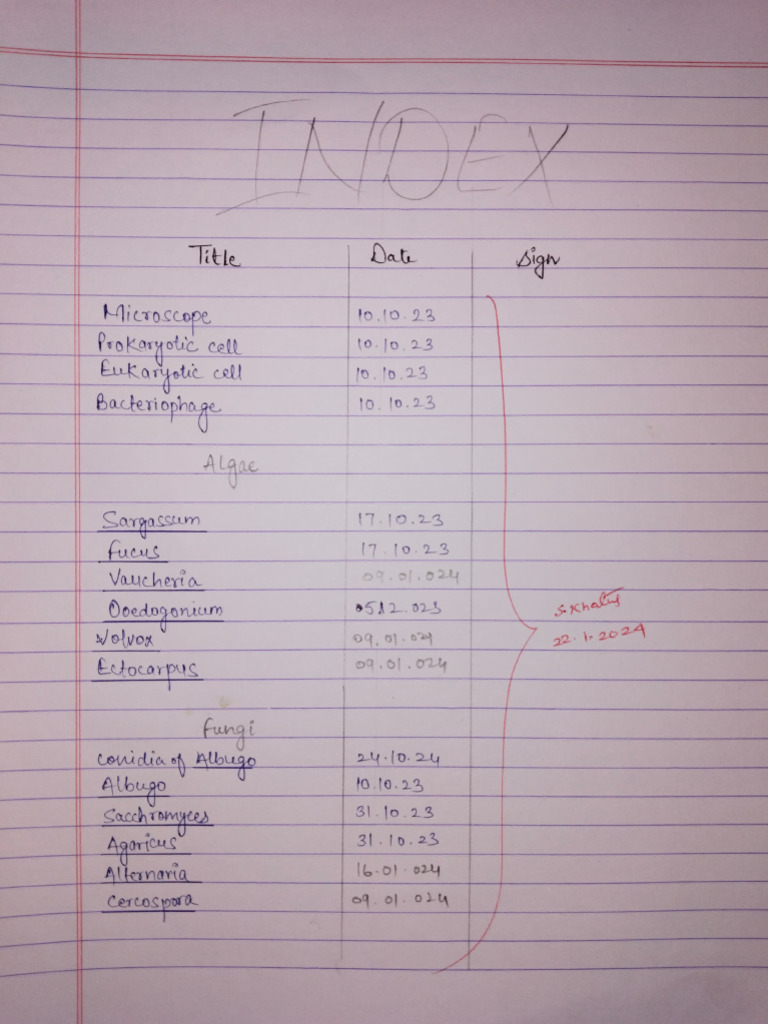 INDEX
Title Date Sign
Microscope 10.10.23
Prokaryotic cell 10.10.23
Eukaryotic cell 10.10.23
Bacteriophage 10.10.23
Algae
Sargassum 17.10.23
Fucus 17.10.23
Vaucheria 09.01.024
Ooedogonium 0512.023
Volvox 09.01.024
Ectocarpus 09.01.024
Fungi
Conidia of Albugo 24.10.24
Albugo 10.10.23
Sacchromyces 31.10.23
Agaricus 31.10.23
Alternaria 16.01.024
Cercospora 09.01.024
22.1.2024